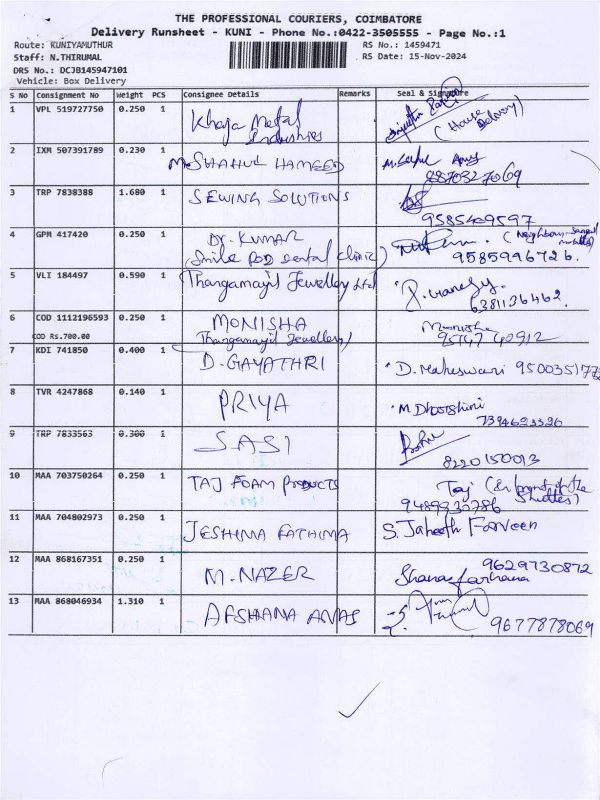 THE PROFESSIONAL COURIERS, COIMBATORE
Delivery Runsheet - KUNI - Phone No.:0422-3505555 - Page No.:1
Route: KUNIYAMUTHUR
RS No.: 1459471
Staff: N.THIRUMAL
RS Date: 15-Nov-2024
DRS No.: DCJB145947101
Vehicle: Box Delivery
S No Consignment No Weight PCS Consignee Details Remarks Seal & Signature
1 VPL 519727750 0.250 1 Khaja Metal
Industries
(House
Delivery)
2 IXM 507391789 0.230 1 M. SHAHUL HAMEED
8870327069
3 TRP 7838388 1.680 1 SEWING SOLUTIONS
9585409597
4 GPM 417420 0.250 1 Dr. KUMAR
(Smile POD Dental Clinic)
9585996726.
5 VLI 184497 0.590 1 Thangamayil Jewellery Ltd
6381136462.
6 COD 1112196593 0.250 1 MONISHA
Thangamayil Jewellery)
COD Rs.700.00
7 KDI 741850 0.400 1 D. GAYATHRI D. Maheswari
8 TVR 4247868 0.140 1 PRIYA M. Dharshini
9 TRP 7833563 0.300 1 SASI
8220150013
10 MAA 703750264 0.250 1 TAJ FOAM PRODUCTS Taj (In front of the
Shuttles)
9489930786
11 MAA 704802973 0.250 1 JESHIMA FATHIMA S. Jaheeth Farveen
12 MAA 868167351 0.250 1 M. NAZER 9629730872
farhana
13 MAA 868046934 1.310 1 AFSHANA ANAS
9677878069